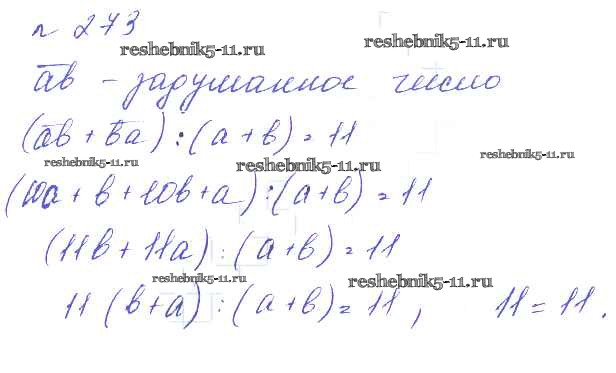 н 273
reshebnik5-11.ru reshebnik5-11.ru
ав - задуманное число
(ав + ва) : (а + в) = 11
reshebnik5-11.ru reshebnik5-11.ru reshebnik5-11.ru
(10а + в + 10в + а) : (а + в) = 11
(11в + 11а) : (а + в) = 11
reshebnik5-11.ru reshebnik5-11.ru
11 (в + а) : (а + в) = 11, 11 = 11.